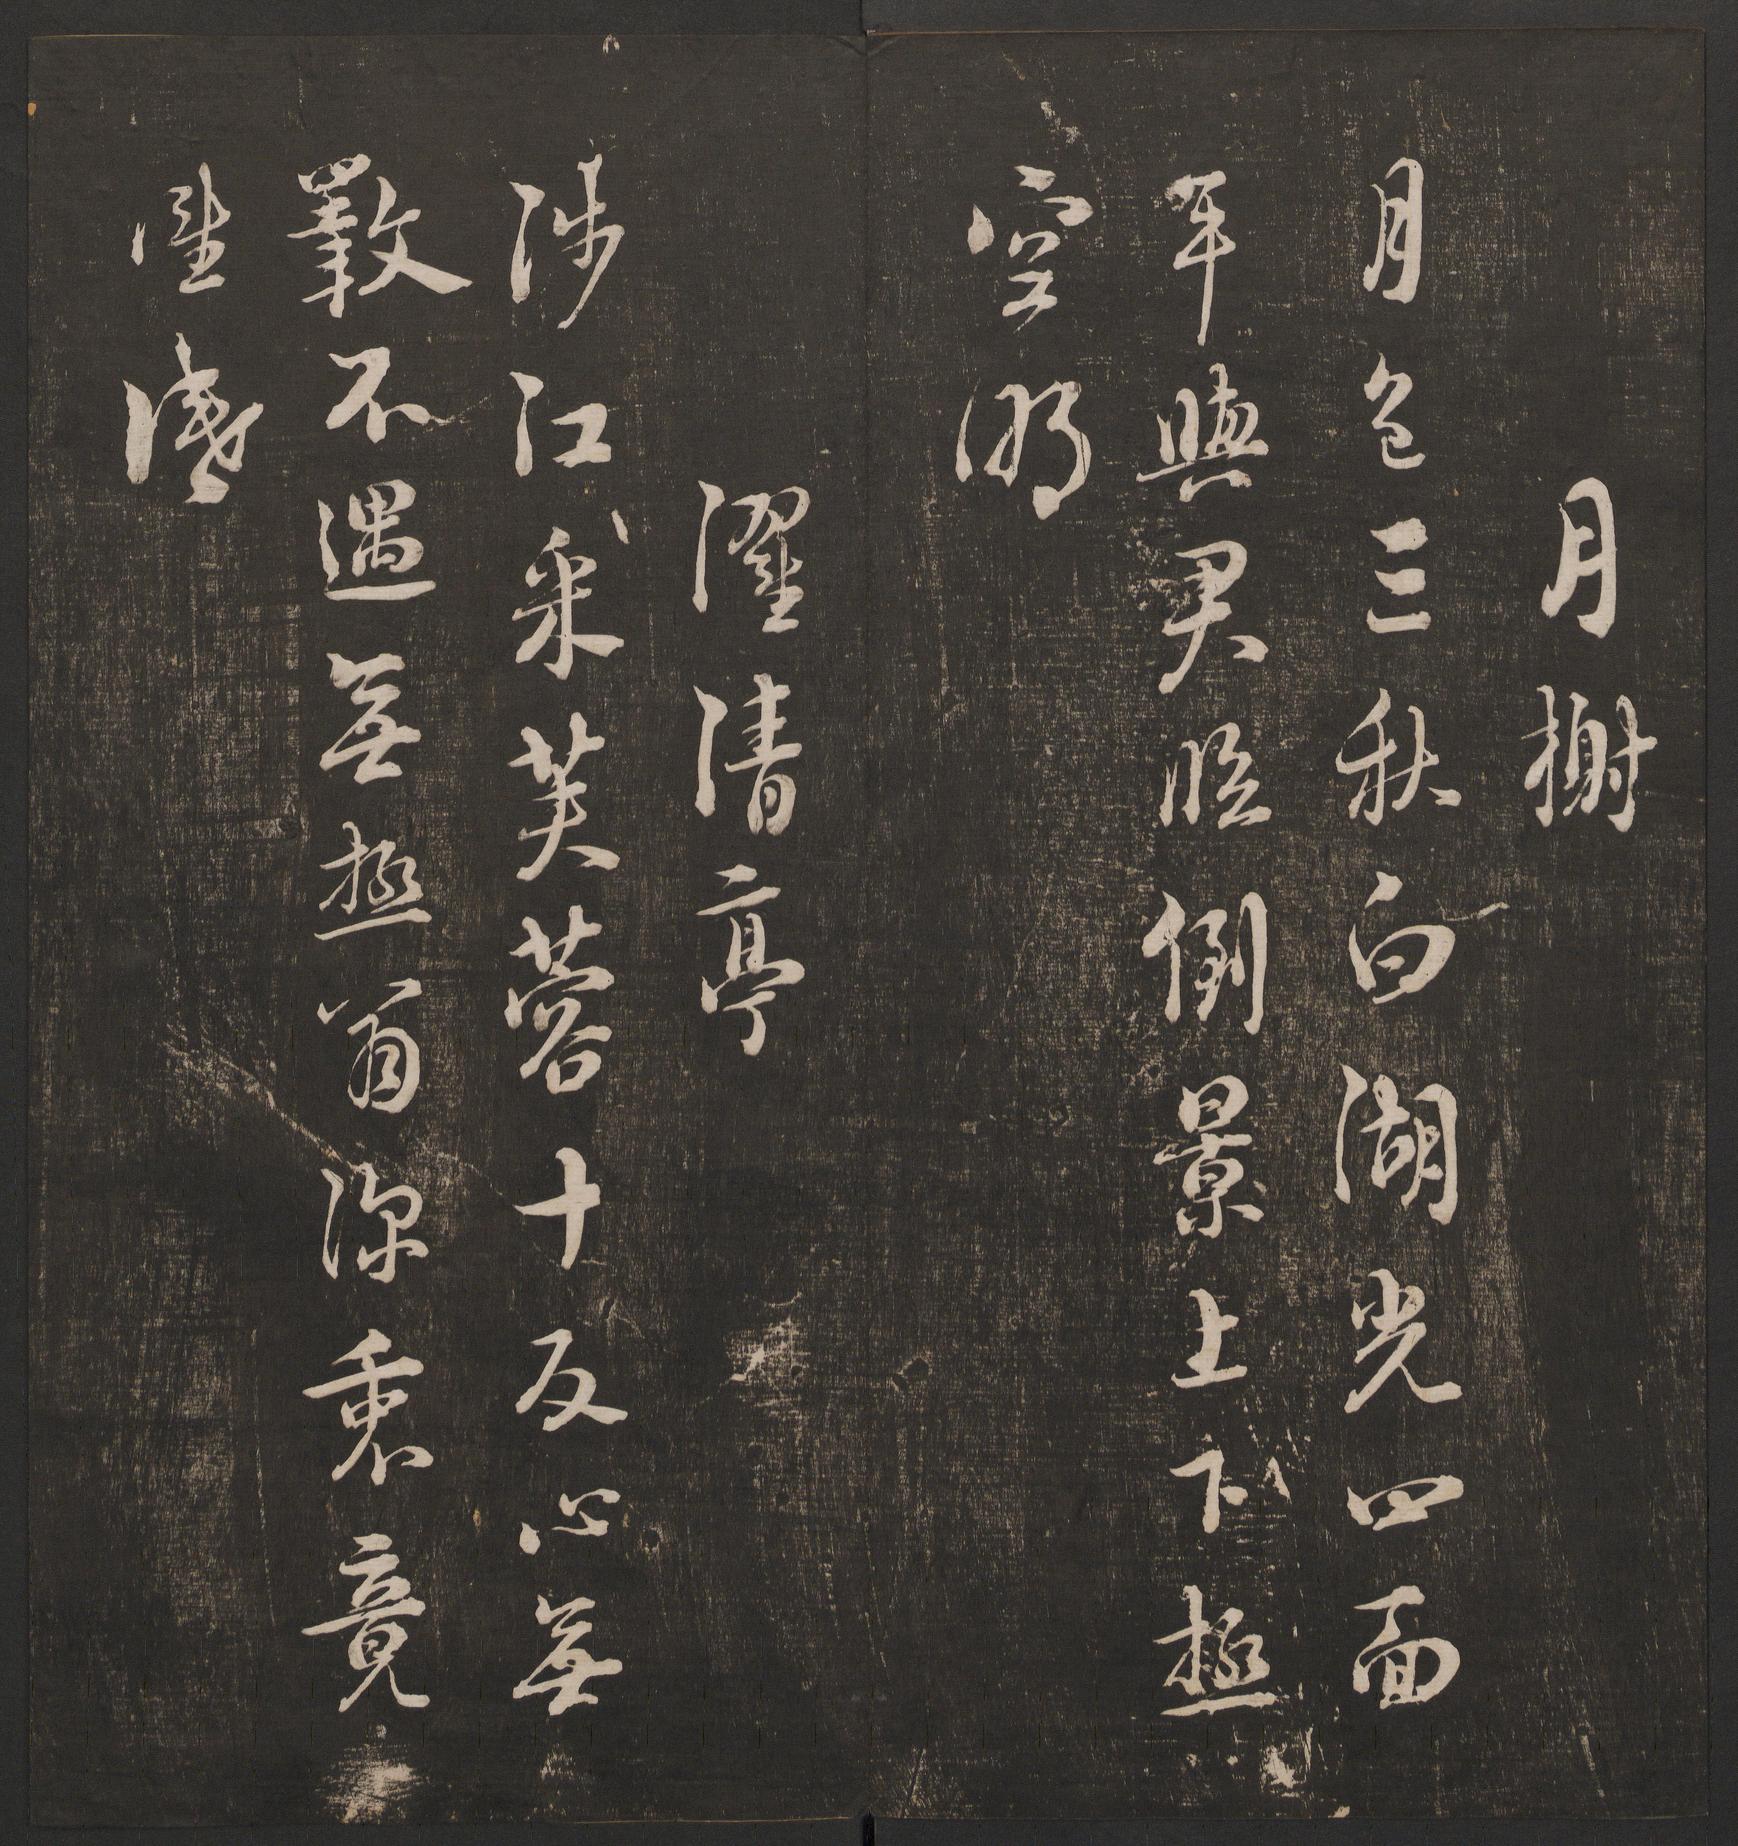 月榭
月色三秋白湖光四面
平與君臨倒景上下極
空明
濯清亭
涉江采芙蓉十反心無
斁不遇無極翁深衷竟
誰識